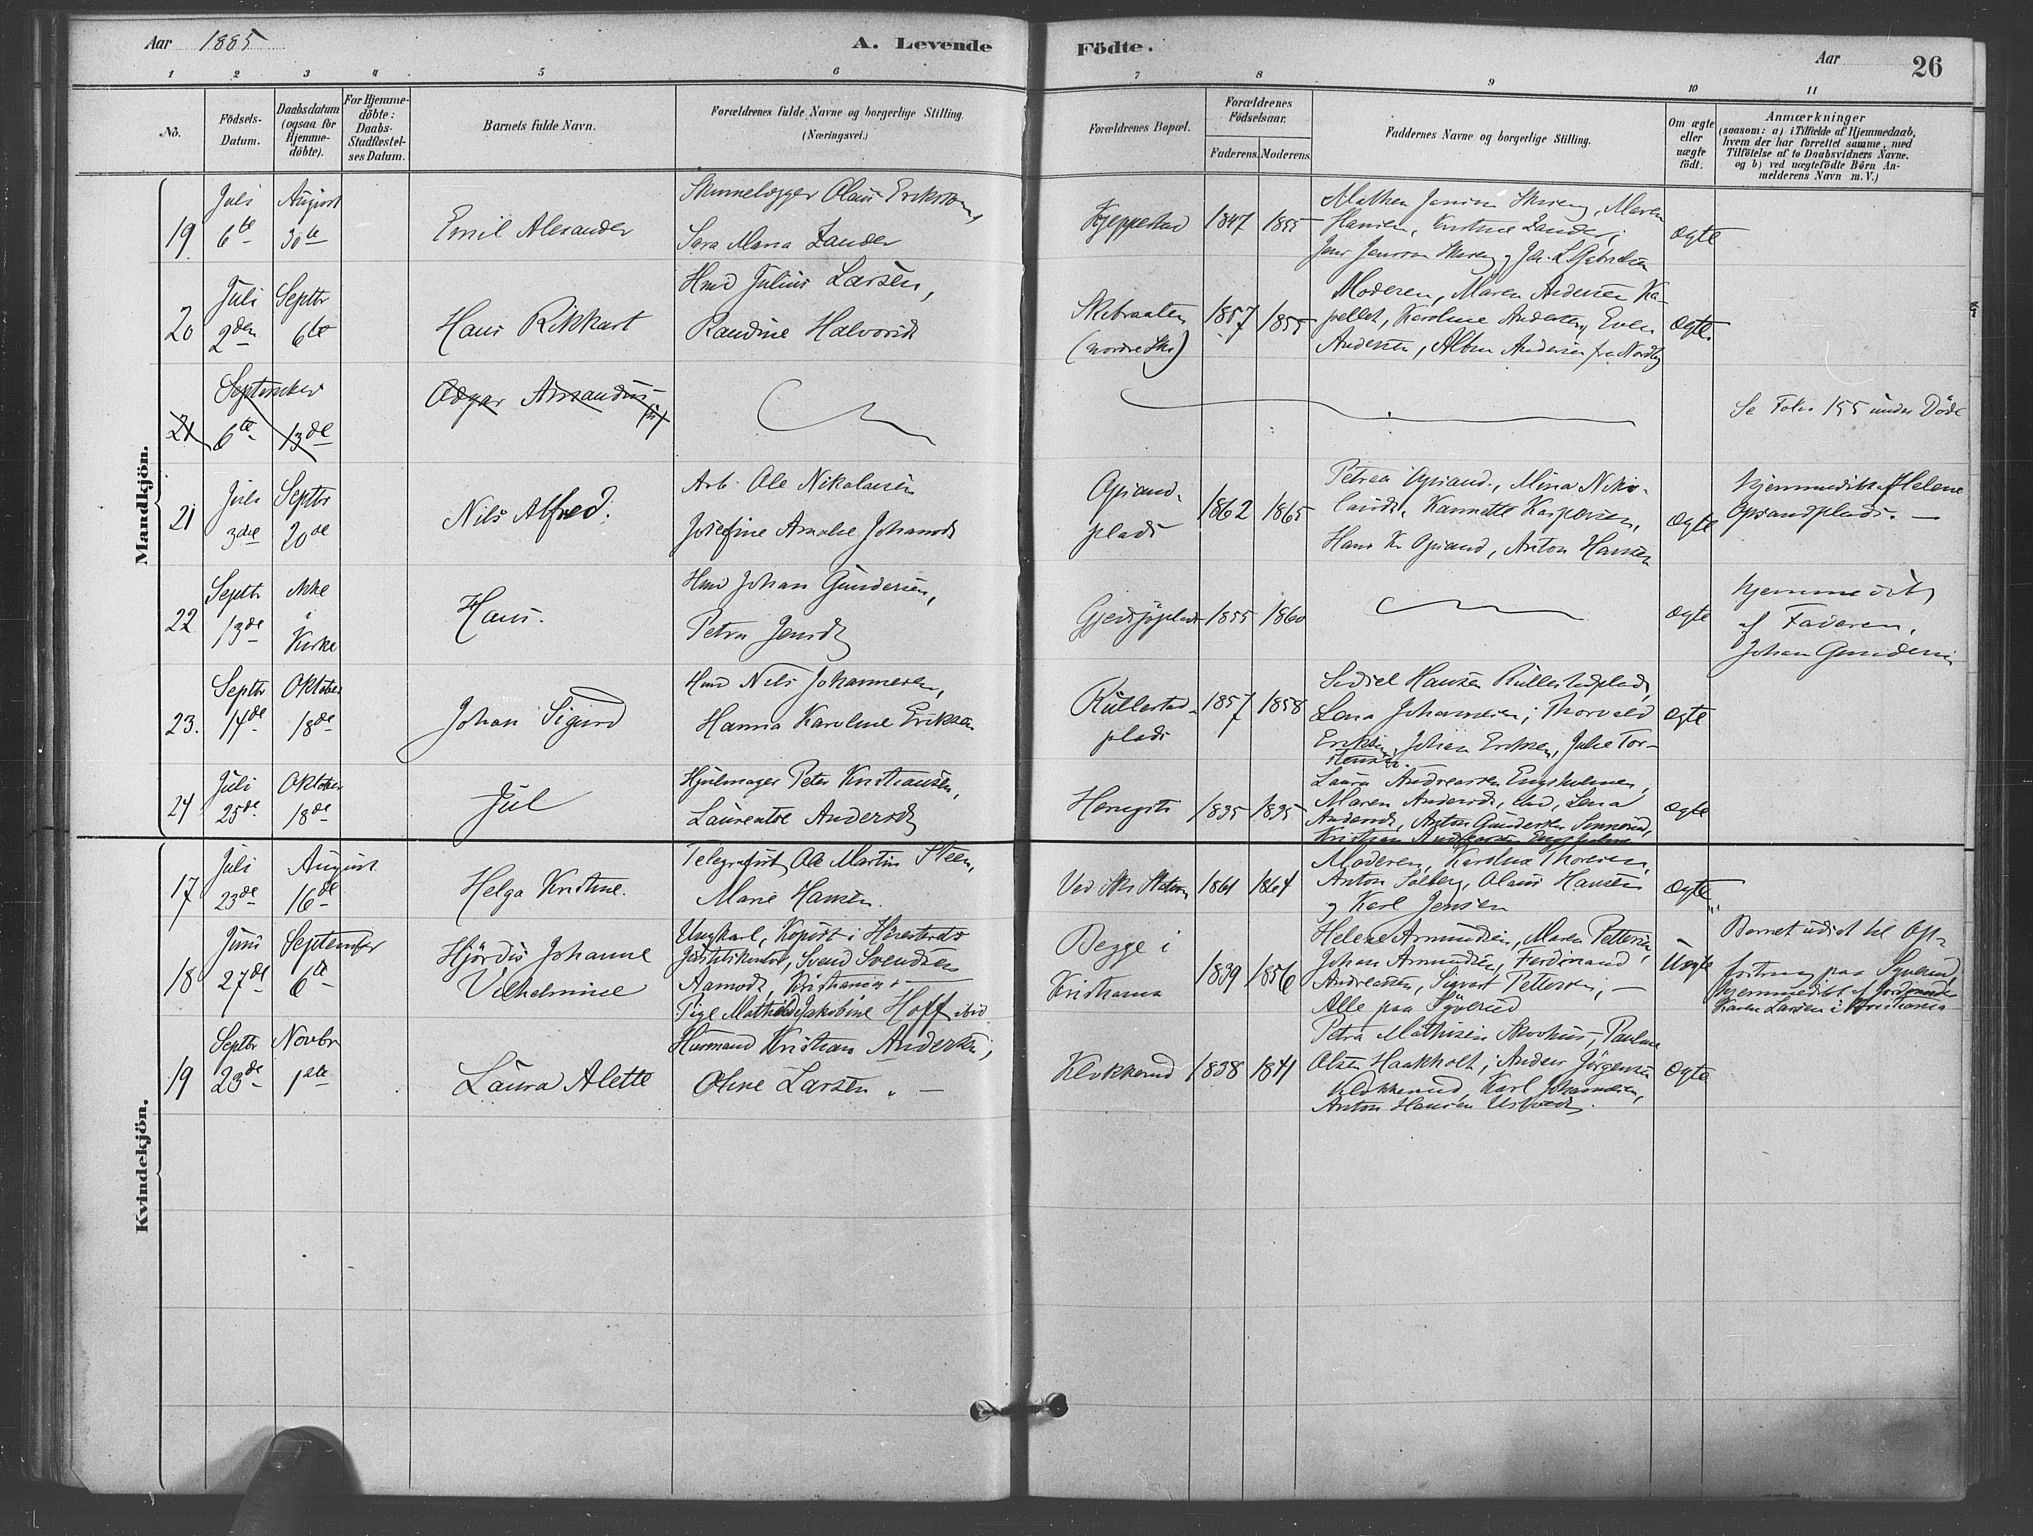 Aar 1885
A. Levende Födte.
Aar
26
1 2 3 4 5 6 7 8 9 10 11
No.
Födsels-Datum.
Daabsdatum (ogsaa for Hjemme-döbte).
For Hjemme-döbte: Daabs-Stadfæstel-ses Datum.
Barnets fulde Navn.
Forældrenes fulde Navne og borgerlige Stilling.
(Næringsvei.)
Forældrenes Bopæl.
Forældrenes Födselsaar.
Faderens. Moderens.
Faddernes Navne og borgerlige Stilling.
Om ægte eller uægte født.
Anmærkninger
(saasom: a) i Tilfælde af Hjemmedaab,
hvem der har forrettet samme, med
Tilföielse af to Daabsvidners Navne.
og b) ved uægtefödte Börn An-
melderens Navn m. V.)
Mandkjön.
19 Juli 6te August 30te
Emil Alexander
Olaus Eriksson
Sara Maria Zander
Kjeppestad 1847 1855
Maren
Hansen, Kristine Zander,
ægte
20 Juli 2den Septbr 6te
Hans Rikkart
Hmd Julius Larsen,
Randine Halvorsd
Skibraaten
(nordre Ski)
1857 1855
Moderen, Maren Andersen Ka-
pellet, Karoline Andersen, Even
Andersen, Andersen fra Nordby
Ægte.
21 September 6te 13de
Se Folio 155 under Döde
21 Juli 3die Septbr 20de
Nils Alfred.
Arb. Ole Nikolaisen
Josefine Johansd
Opsand-
plads
1862 1865
Petrea Opsand, Mina Niko-
laisd, Kaspersen,
Hans K. Opsand, Anton Hansen
Ægte
hjemmedöbt af Helene
Opsandplads. —
22 Septbr 13de Ikke i Kirke
Hans.
Hmd Johan Gundersen,
Petra Jensd
1855 1860
ægte
hjemmedöbt
af Faderen,
Johan Gundersen
23. Septbr 14de Oktober 18de
Johan Sigurd
Hmd Nils Johannesen,
Hanna Karoline Eriksen
Kullestad-
plads
1857 1858
Hansen Kullestadplads,
Lena Johannesen, Thorvald
Eriksen, Johan Eriksen, Julie Tor-
stensd.
ægte
24 Juli 25de Oktober 18de
Jul
Hjulmager Peter Kristiansen,
Laurentse Andersd
1835 1835
Laura Andreassen Engsholmen,
Maren Andersd, ibid, Lena
Andersd, Anton Gundersen
Kristian Andreassen Engsholm
ægte
Kvindekjön.
17 Juli 23de August 16de
Helga Kristine.
Telegrafist Ole Martin Steen,
Marie Hansen.
Ved Ski Station 1861 1864
Moderen, Karolina Thoresen,
Anton Solberg, Olaus Hansen
og Karl Jensen
ægte
18 Juni 27de September 6te
Hjördis Johanne
Vilhelmine
Ungkarl, Kopist i Heresterets
Justitskontor, Svend Svendsen
Aamodt, Kristiania +
Pige Mathilde Jakobine Hoff ibid
Begge i
Kristiania
1839 1856
Helene Amundsen, Maren Pettersen,
Johan Amundsen, Ferdinand
Andreassen, Sigvart Pettersen, —
Alle paa Syverud
Uægte
Barnet udsat til Op-
fostring paa Syverud,
hjemmedöbt af Jordemoder
Karen Larsen i Kristiania
19 Septbr 23de Novbr 1ste
Laura Alette
Husmand Kristian Andersen,
Oline Larsen. —
Klokkerud 1838 1841
Petra Mathisen Skovhus, Pauline
Olsen Haakholt, Anders Jörgensen
Klokkerud, Karl Johannesen,
Anton Hansen
Ægte